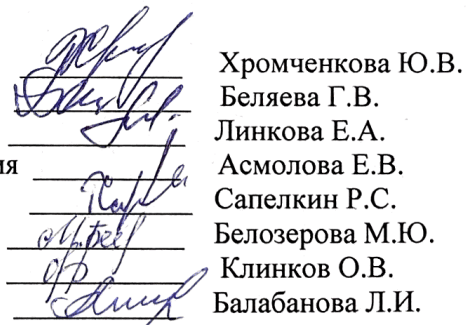 Хромченкова Ю.В.
Беляева Г.В.
Линкова Е.А.
ия Асмолова Е.В.
Сапелкин Р.С.
Белозерова М.Ю.
Клинков О.В.
Балабанова Л.И.